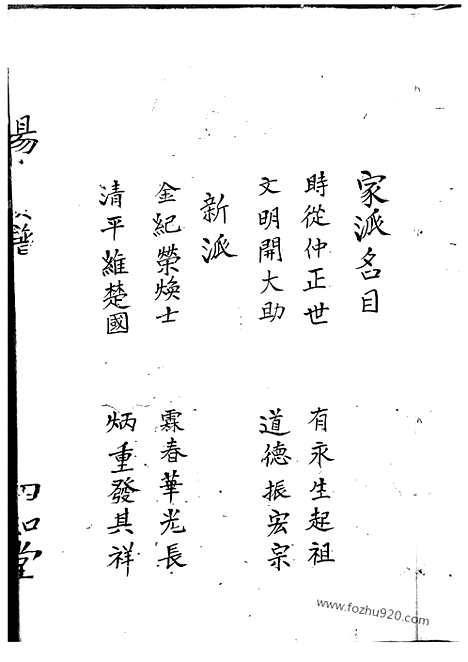 家派名目
時從仲正世 有永生起祖
文明開大助 道德振宏宗
新派
金紀榮煥士 霖春華光長
清平維楚國 炳重發其祥
譜
四知堂
www.fozhu920.com